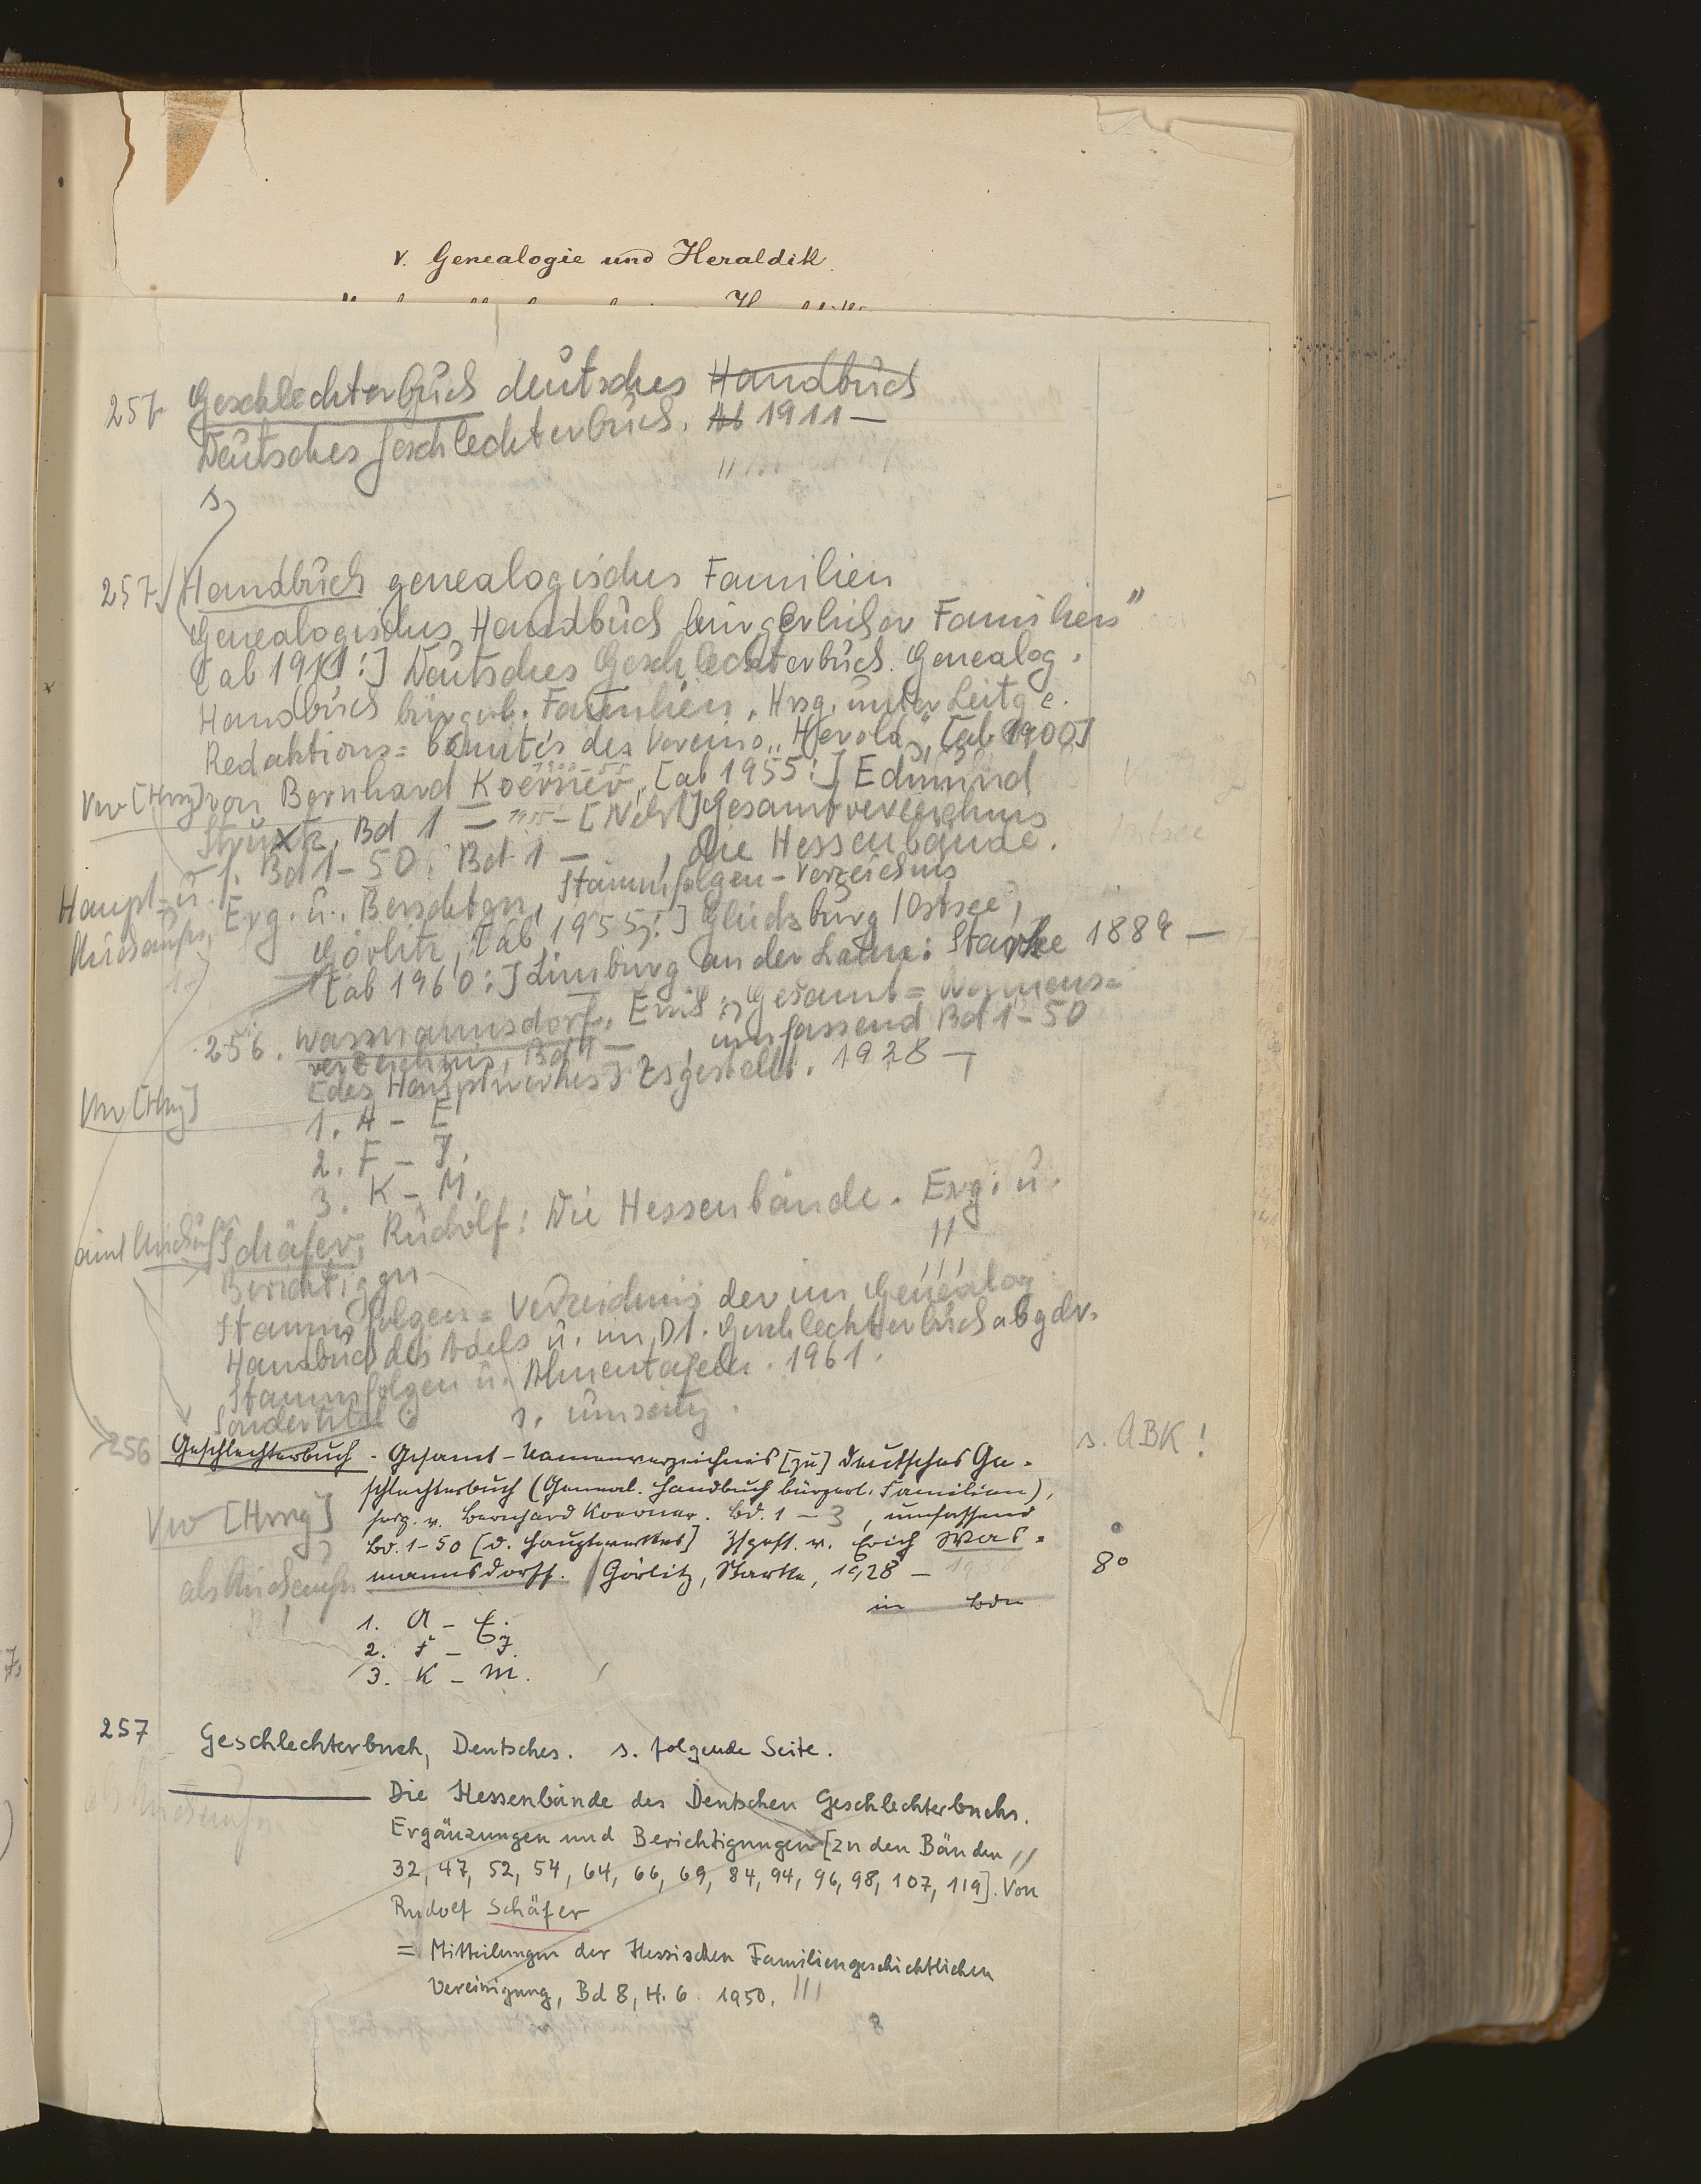 V. Genealogie und Heraldik
257 Geschlechterbuch deutsches Handbuch
Deutsches Geschlechterbuch. Ab 1911 —
s.
257. Handbuch genealogisches Familien
Genealogisches Handbuch bürgerlicher Familien"
[ab 1911:] Deutsches Geschlechterbuch. Genealog.
Handbuch bürgerl. Familien. Hrsg. unter Leitg e.
Redaktions=Comités des Vereins „Herold", [ab 1900]
Vw [Hrsg] von Bernhard Koerner, [ab 1955:] Edmund
Strutz, Bd 1 — [Nebst] Gesamtverzeichnis
f. Bd 1-50. Bd 1 — , Die Hessenbände.
Haupt- u. Erg. u. Berichtgn, Stammfolgen-Verzeichnis
Görlitz, [ab 1955:] Glücksburg/Ostsee,
[ab 1960:] Limburg an der Lahn: Starke 1889 —
256. Wasmannsdorf, Erich: Gesamt=Namens=
verzeichnis, Bd 1 — , umfassend Bd 1-50
[des Hauptwerkes] Zsgestellt. 1928 —
Vw [Hrsg]
1. A - E
2. F - J.
3. K - M.
Schäfer, Rudolf: Die Hessenbände. Erg. u.
Berichtiggn
Stammfolgen=Verzeichnis der im Genealog.
Handbuch des Adels u. im Dt. Geschlechterbuch abgedr.
Stammfolgen u. Ahnentafeln. 1961.
Sondertitel s. umseitig.
256 Geschlechterbuch. Gesamt-Namenverzeichnis [zu] Deutsches Ge- s. ABK!
schlechterbuch (Geneal. Handbuch bürgerl. Familien),
Vw [Hrsg] hrsg. v. Bernhard Koerner. Bd. 1-3, umfassend
Bd. 1-50 [d. Hauptwerkes] Zsgest. v. Erich Was-
mannsdorff. Görlitz, Starke, 1928 — 8°
in Bdn
1. A - E.
2. F - J.
3. K - M.
257 Geschlechterbuch, Deutsches. s. folgende Seite.
Die Hessenbände des Deutschen Geschlechterbuchs.
Ergänzungen und Berichtigungen [zu den Bänden
32, 47, 52, 54, 64, 66, 69, 84, 94, 96, 98, 107, 119]. Von
Rudolf Schäfer
= Mitteilungen der Hessischen Familiengeschichtlichen
Vereinigung, Bd 8, H. 6. 1950.